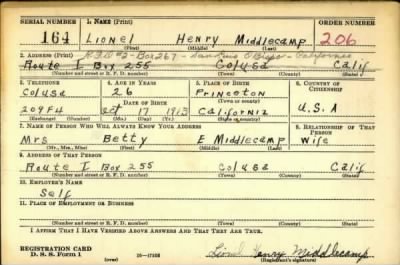 SERIAL NUMBER 1. NAME (Print) ORDER NUMBER
164 Lionel Henry Middlecamp 206
(First) (Middle) (Last)
2. ADDRESS (Print) R.F.D #2-Box 267 - San Luis Obispo-California
Route I Box 255 Colusa Calif
(Number and street or R. F. D. number) (Town) (County) (State)
3. TELEPHONE 4. AGE IN YEARS 5. PLACE OF BIRTH 6. COUNTRY OF CITIZENSHIP
Colusa 26 Princeton
DATE OF BIRTH (Town or county) U.S.A
209F4 Oct 17 1913 California
(Exchange) (Number) (Mo.) (Day) (Yr.) (State or country)
7. NAME OF PERSON WHO WILL ALWAYS KNOW YOUR ADDRESS 8. RELATIONSHIP OF THAT PERSON
Mrs Betty E Middlecamp Wife
(Mr., Mrs., Miss) (First) (Middle) (Last)
9. ADDRESS OF THAT PERSON
Route I Box 255 Colusa Calif
(Number and street or R. F. D. number) (Town) (County) (State)
10. EMPLOYER'S NAME
Self
11. PLACE OF EMPLOYMENT OR BUSINESS
(Number and street or R. F. D. number) (Town) (County) (State)
I AFFIRM THAT I HAVE VERIFIED ABOVE ANSWERS AND THAT THEY ARE TRUE.
REGISTRATION CARD Lionel Henry Middlecamp
D. S. S. FORM 1 (over) (Registrant's signature)